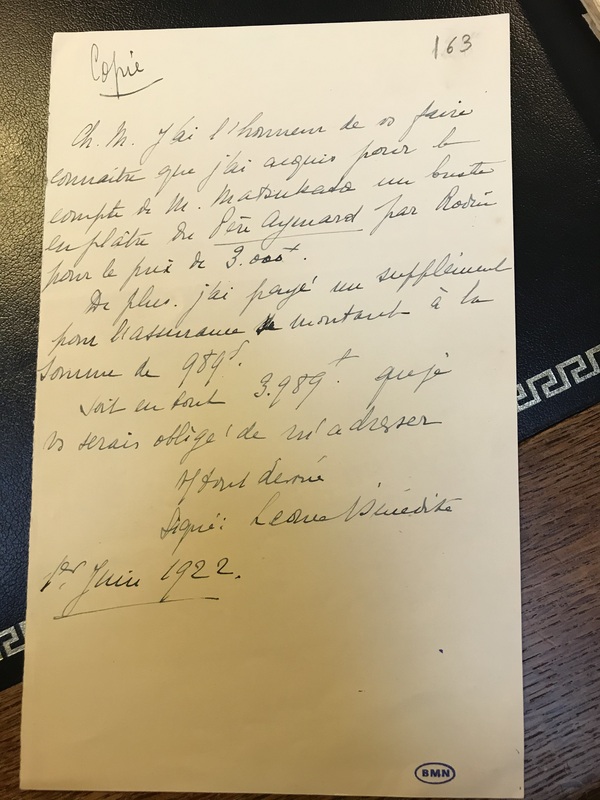 Copie
163
Ch. M. J'ai l'honneur de vs faire
connaitre que j'ai acquis pour le
compte de M. Matsukata un buste
en plâtre du Père Aymard par Rodin
pour le prix de 3.000f.
De plus. j'ai payé un supplément
pour l'assurance montant à la
somme de 989f.
Soit en tout 3.989f. que je
vs serais obligé de m'adresser
Signé: Leonce Bénédite
1er Juin 1922.
BMN